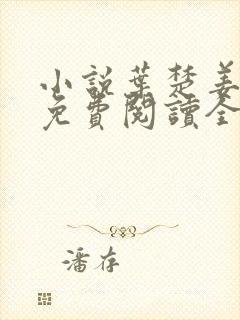 小説葉楚姜
免費閱讀全
潘存